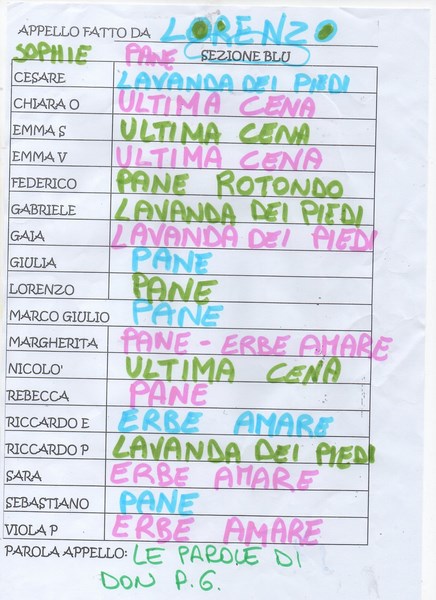 APPELLO FATTO DA LORENZO
SOPHIE PANE SEZIONE BLU
CESARE LAVANDA DEI PIEDI
CHIARA O ULTIMA CENA
EMMA S ULTIMA CENA
EMMA V ULTIMA CENA
FEDERICO PANE ROTONDO
GABRIELE LAVANDA DEI PIEDI
GAIA LAVANDA DEI PIEDI
GIULIA PANE
LORENZO PANE
MARCO GIULIO PANE
MARGHERITA PANE - ERBE AMARE
NICOLO' ULTIMA CENA
REBECCA PANE
RICCARDO E ERBE AMARE
RICCARDO P LAVANDA DEI PIEDI
SARA ERBE AMARE
SEBASTIANO PANE
VIOLA P ERBE AMARE
PAROLA APPELLO: LE PAROLE DI
DON P.G.